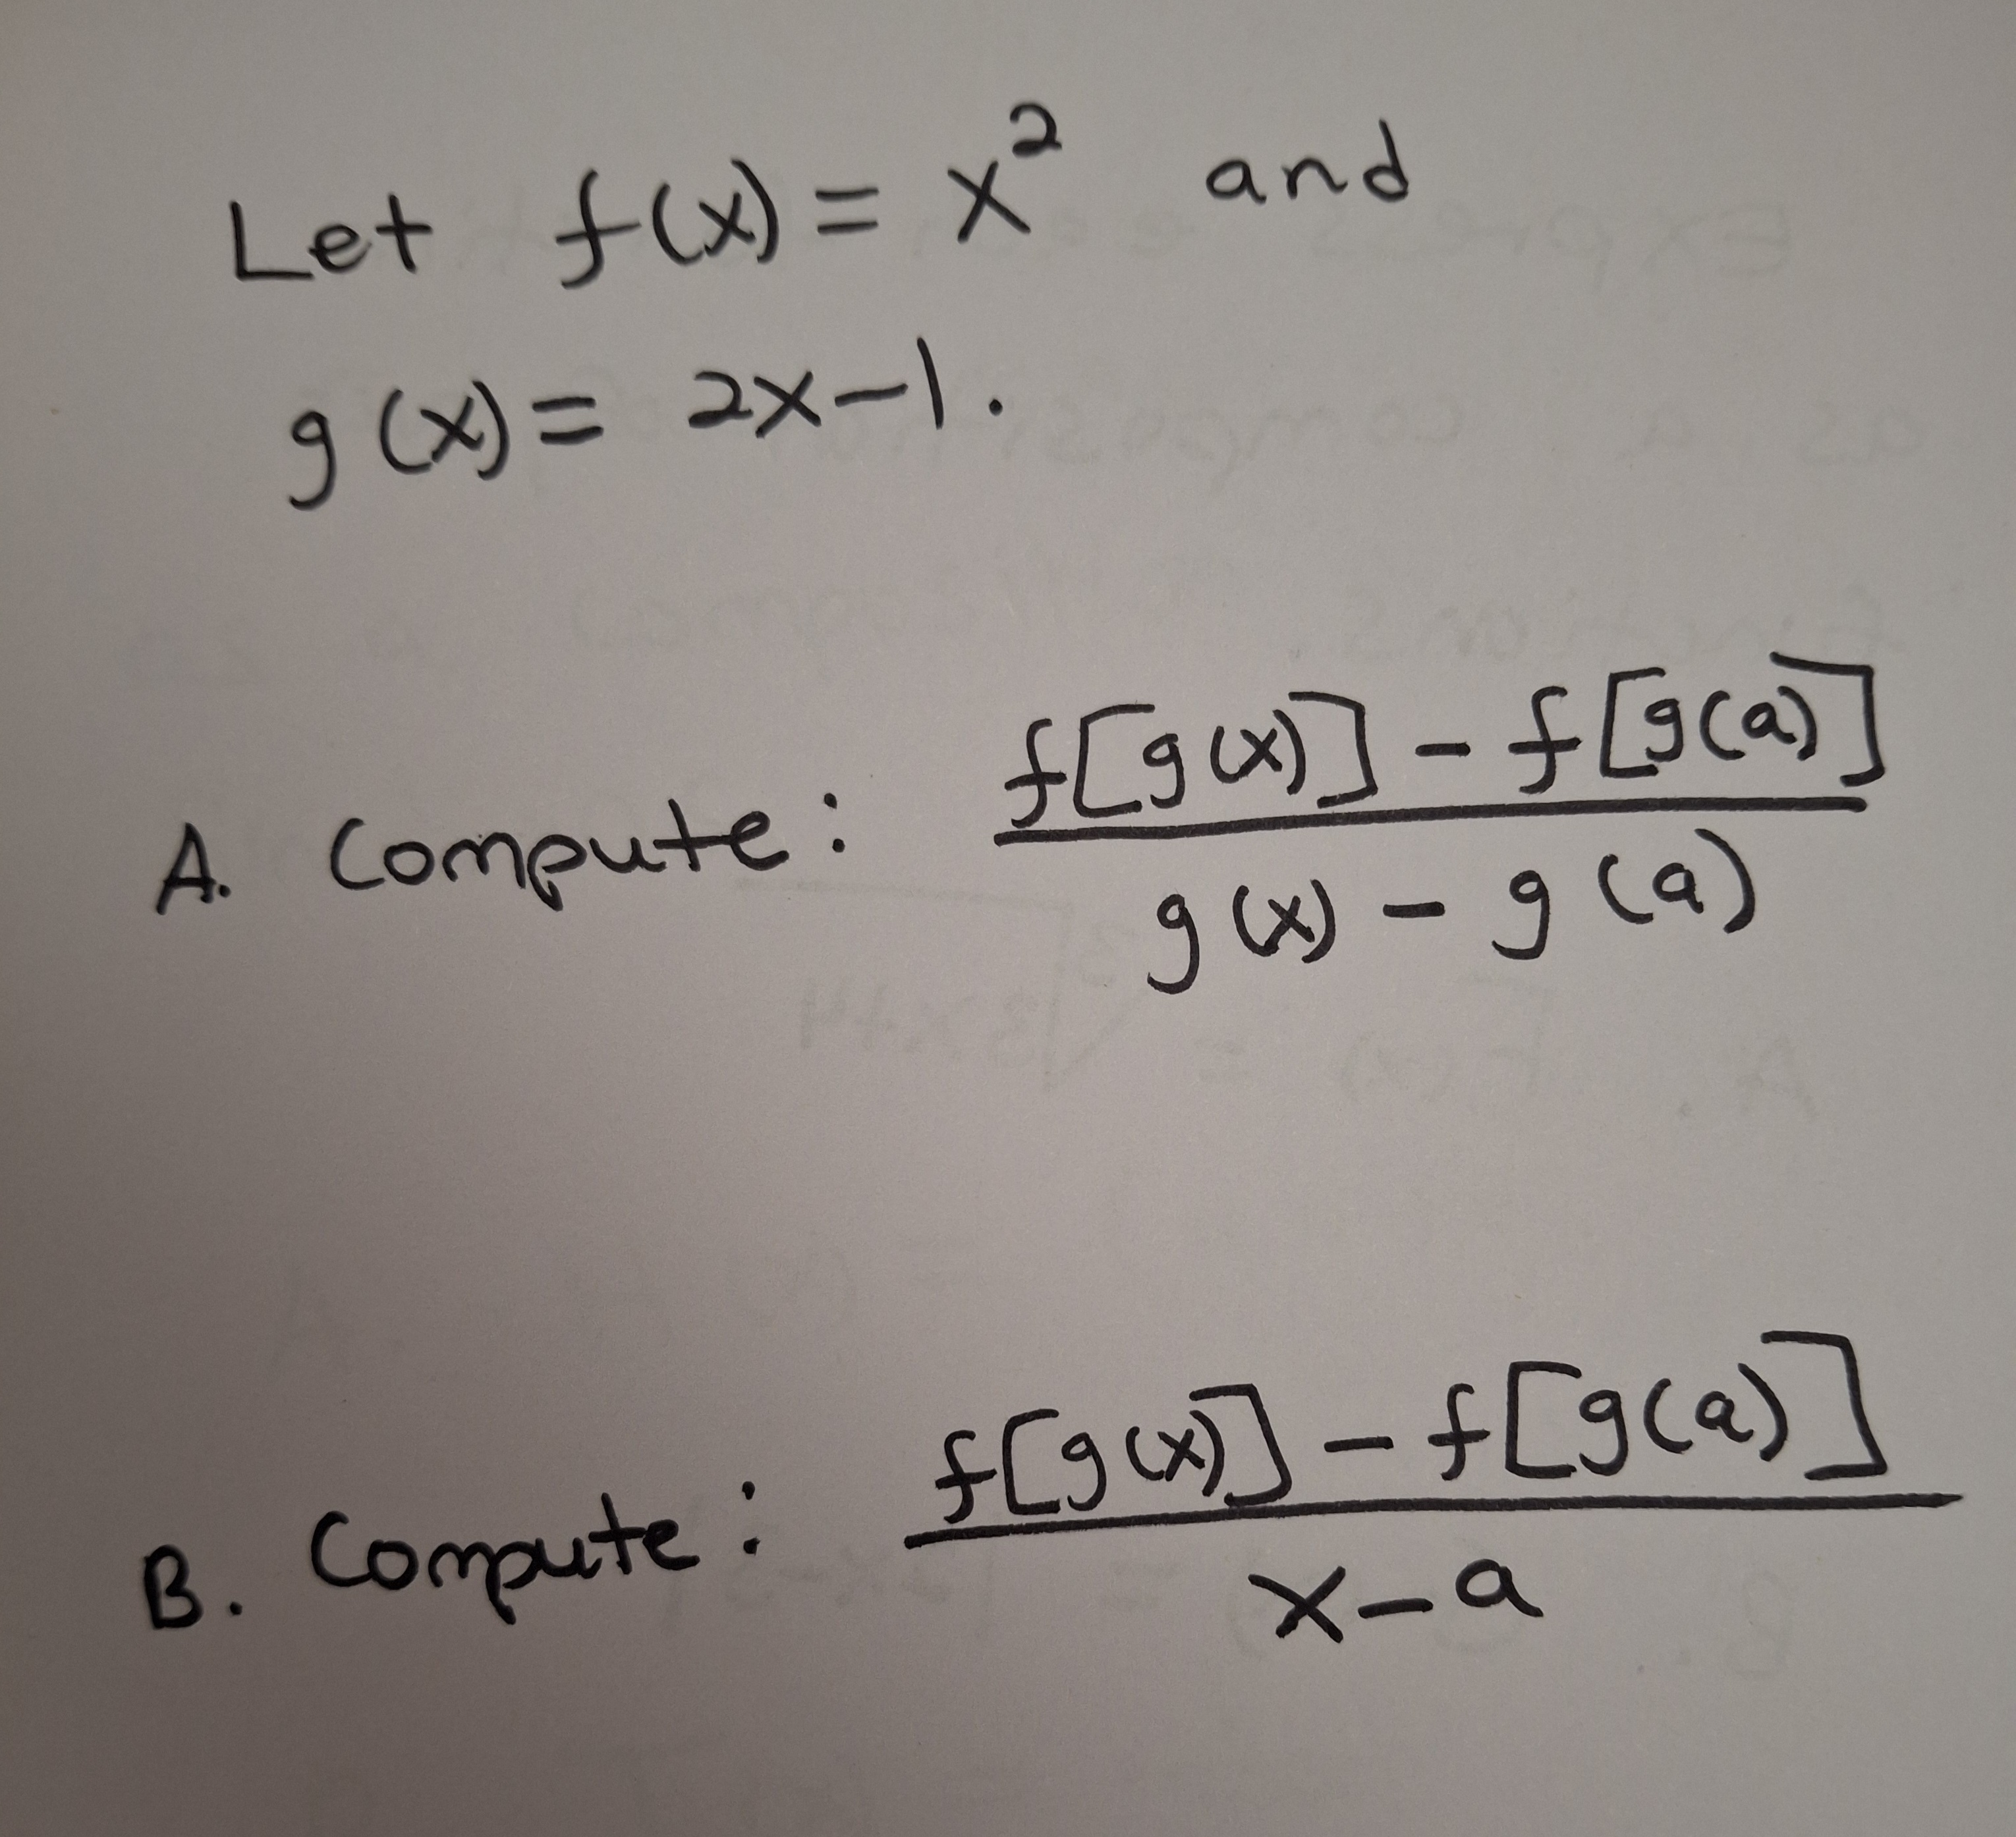 Let f(x) = x² and
g(x) = 2x-1.
A. Compute: f[g(x)] - f[g(a)]
g(x) - g(a)
B. Compute: f[g(x)] - f[g(a)]
x-a